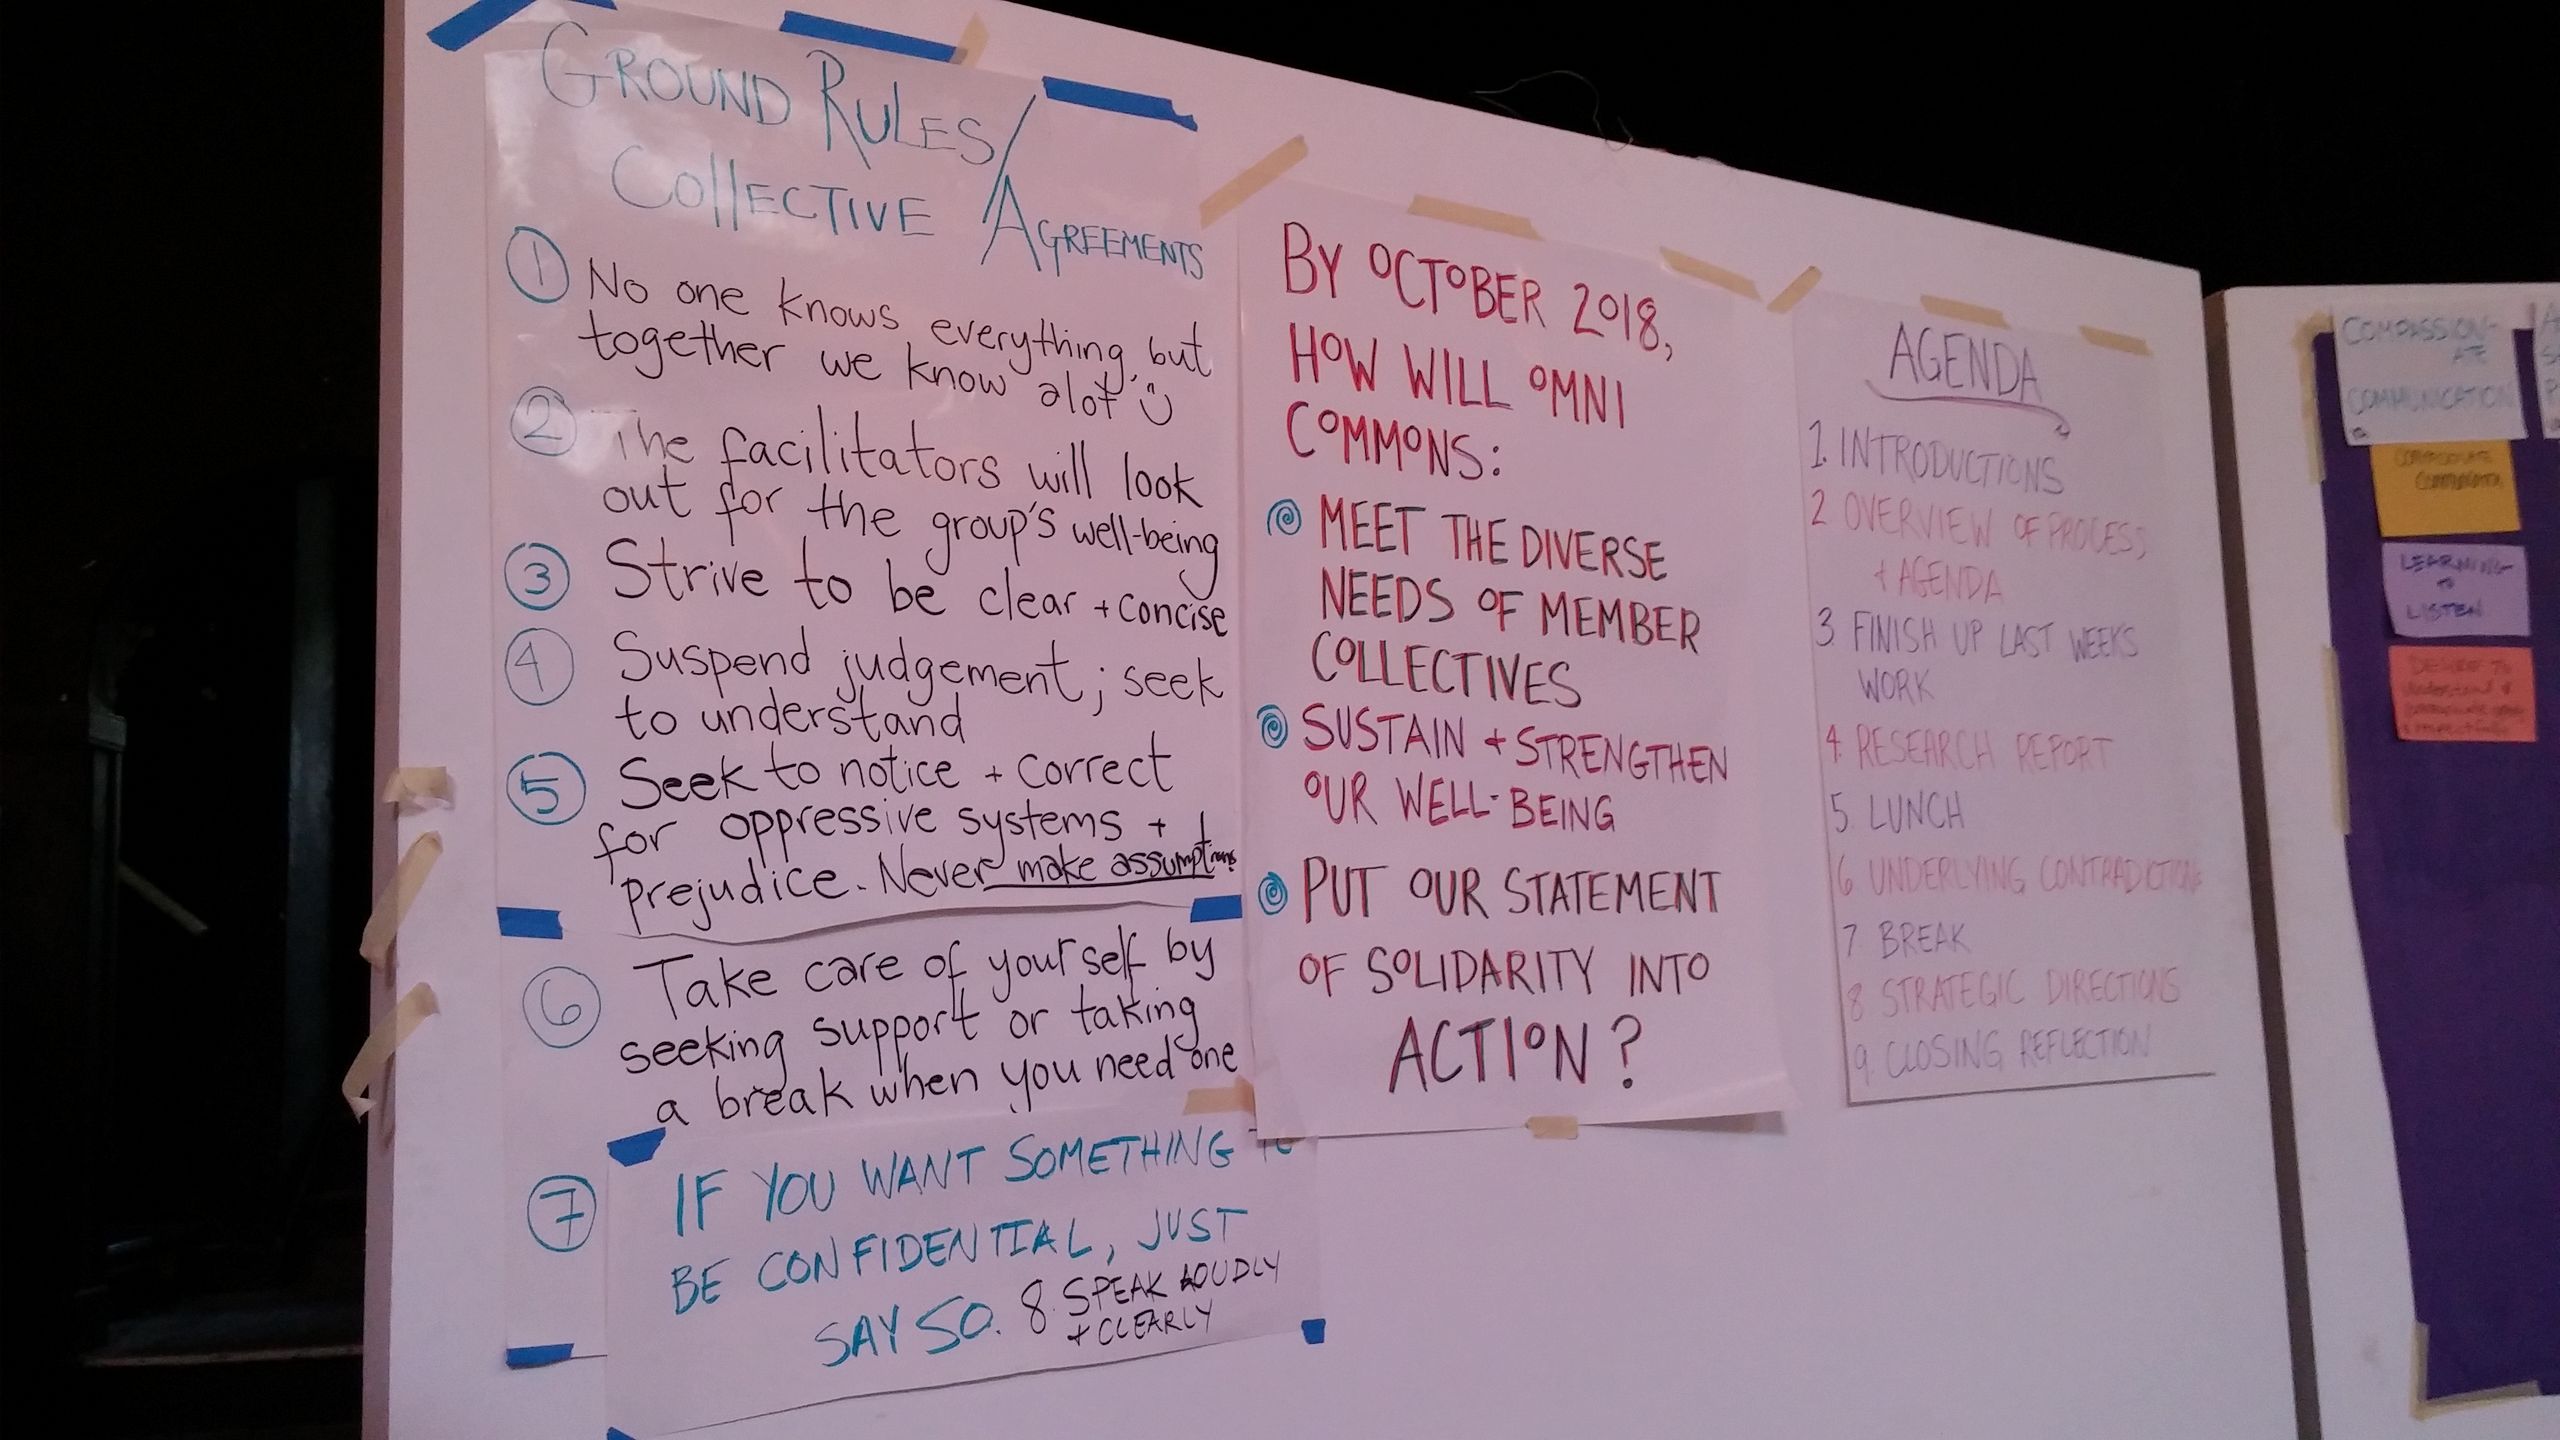 GROUND RULES/
COLLECTIVE AGREEMENTS
1 No one knows everything, but
together we know alot
2 The facilitators will look
out for the group's well-being
3 Strive to be clear + concise
4 Suspend judgement; seek
to understand
5 Seek to notice + correct
for oppressive systems +
prejudice. Never make assumptions
6 Take care of yourself by
seeking support or taking
a break when you need one
7 IF YOU WANT SOMETHING TO
BE CONFIDENTIAL, JUST
SAY SO.
8. SPEAK LOUDLY
+ CLEARLY
BY OCTOBER 2018,
HOW WILL OMNI
COMMONS:
MEET THE DIVERSE
NEEDS OF MEMBER
COLLECTIVES
SUSTAIN + STRENGTHEN
OUR WELL-BEING
PUT OUR STATEMENT
OF SOLIDARITY INTO
ACTION?
AGENDA
1. INTRODUCTIONS
2 OVERVIEW OF PROCESS
+ AGENDA
3 FINISH UP LAST WEEKS
WORK
4. RESEARCH REPORT
5. LUNCH
6 UNDERLYING CONTRADICTIONS
7 BREAK
8 STRATEGIC DIRECTIONS
9. CLOSING REFLECTION
COMPASSION-
ATE
COMMUNICATION
LEARNING
TO
LISTEN